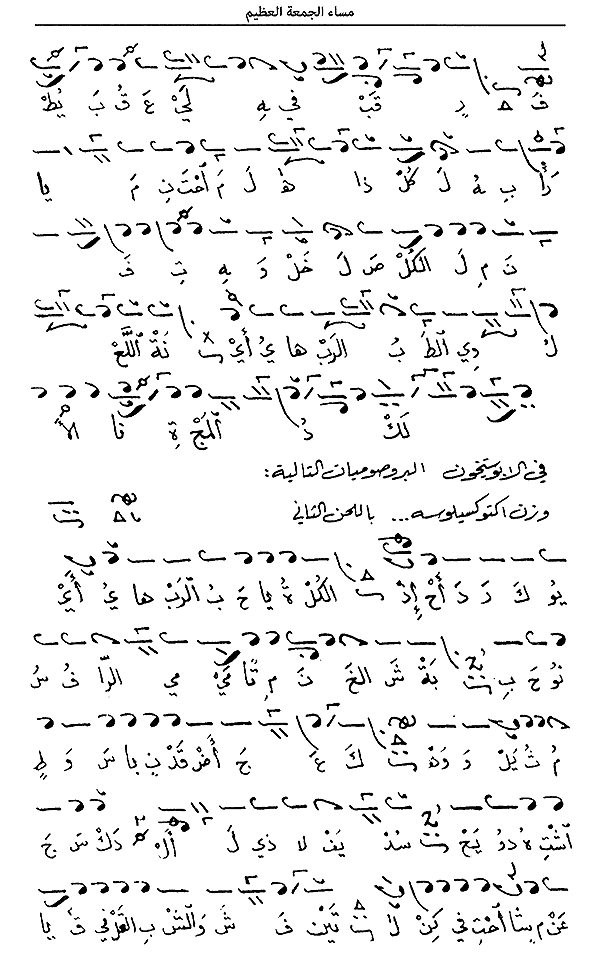 مساء الجمعة العظيم
فَ رِ قَبْ في هِ لَيْ عَ قُ بَ يُطْ
رَأ بِ هُ لَ كُلْ ذا هٰ لَ مَ أحْتَ نِ مَ يا
نَ مِ لَ الكُلْ صَ لَ خَلْ وَ هِ تِ فَ
لُ دِي ٱلطَ بُ الرَبْ ها يُ أَيْ نَةْ ٱللَّعْ
لَكْ دُ ٱلمَجْ ةِ نا الأَ
في الابوستيخون البروصوميات التالية:
وزن اكتوكسيلوسه... باللحن الثاني
يو كَ دَ دَ أَحْ إذْ الكُلْ ةُ يا حَ بُ الرَبْ ها يُ أَيْ
نو حَ بِ بَةْ شَ الخَ نَ مِ قا مَيْ مي الرّا فُ سُ
مُ ثُ يَلْ وَ وَهْ كَ عَ حَ أَضْ قَدْ نِ با سَ وَ طِ
ٱشْتِ هُ دو يَجْ سْدَ يَفْ لا ذي لَ أَلْ دَكْ سَ جَ
عَنْ مِ يشا أحْتِ في كِنْ لٰ تَيْنِ فَ شَ وَٱلشَ بِ القَرْ في قَ يا